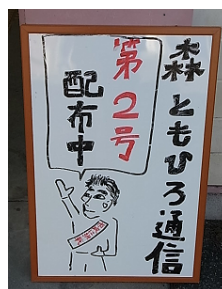 森ともひろ通信
第2号
配布中